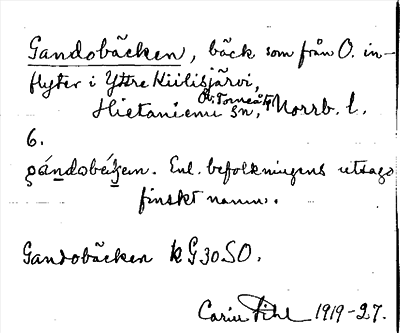 Gandobäcken, bäck som från O. in-
flyter i Yttre Kiilisjärvi,
Hietaniemi sn, Ö. Torneå tg Norrb. l.
6.
Enl. befolkningens utsago
finskt namn.
Gandobäcken k G30SO.
Carin Pihl 1919-27.